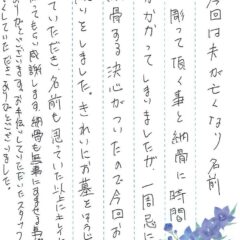 今回は夫が亡くなり名前
彫って頂く事と納骨に時間
かかってしまいましたが、一周忌に
骨する決心がついたので今回お
いをしました。きれいにお墓をそうじ
ていただき、名前も思っていた以上にキレイ
てもらい感謝します。納骨も無事に済ませる事
がとうございます。お手伝いしてくださったスタッフ
くしていただき ありがとうございました。